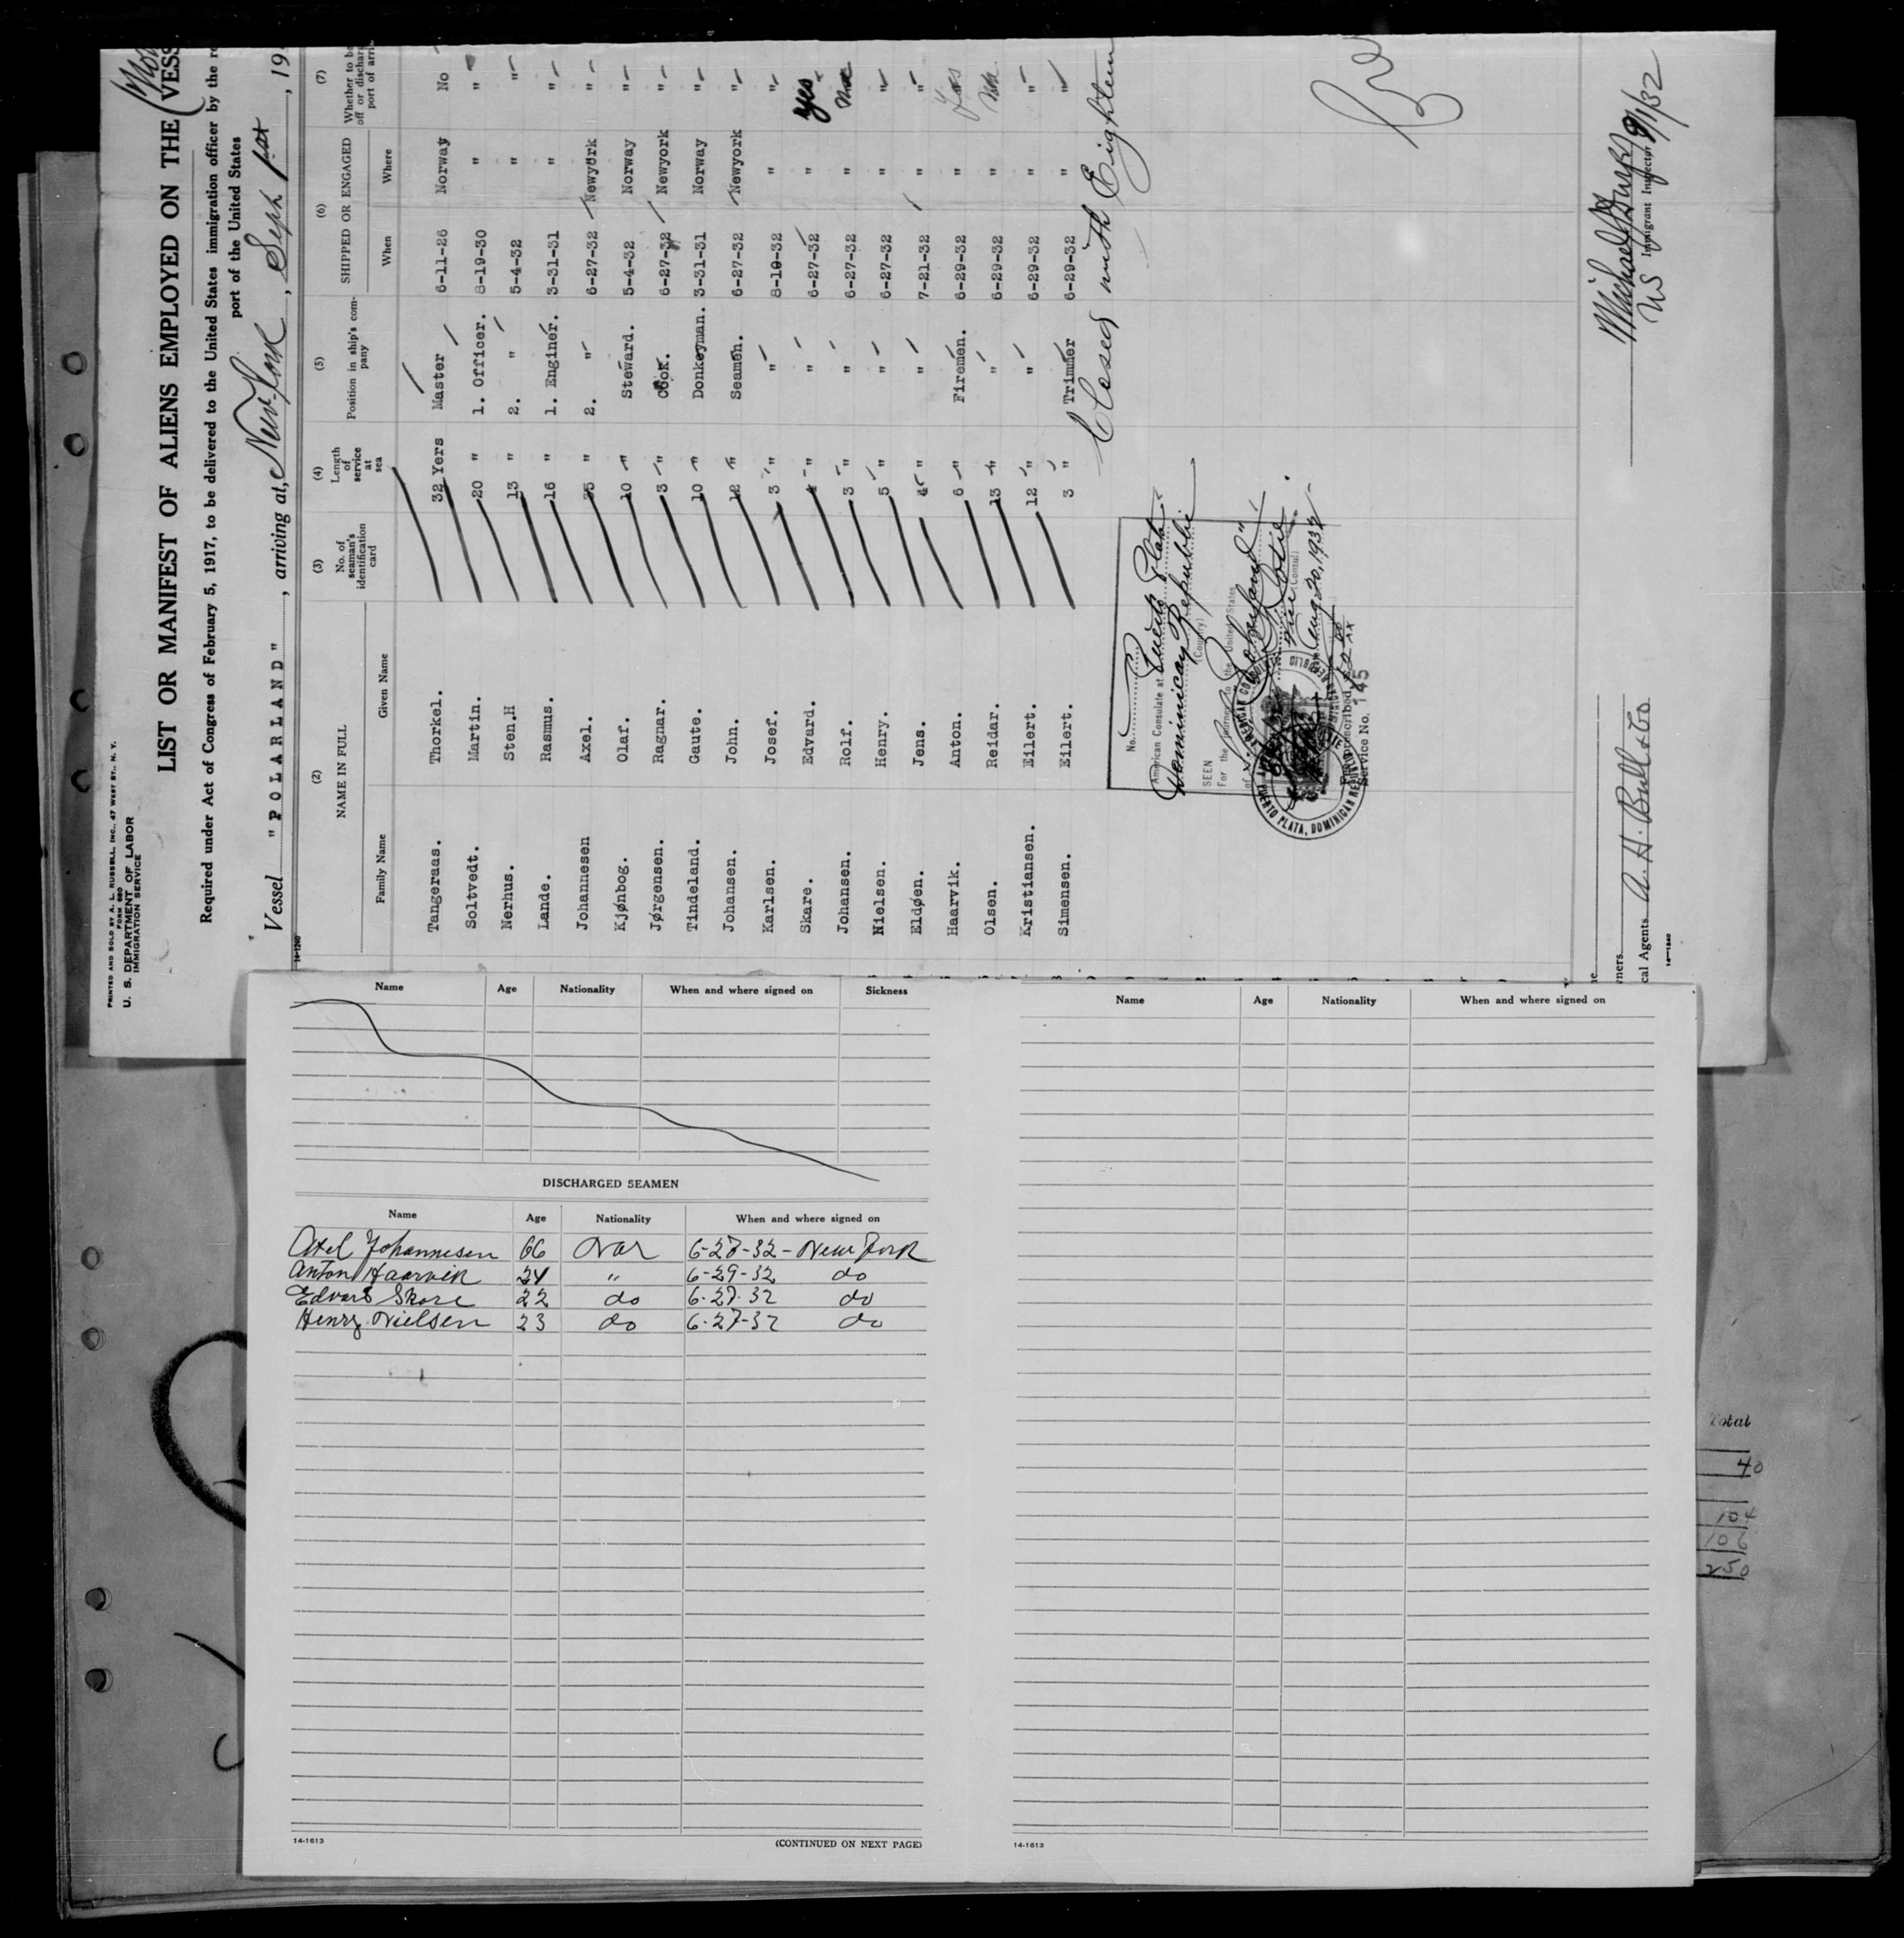 PRINTED AND SOLD BY A. L. RUSSELL, INC., 47 WEST ST., N. Y.
FORM 680
U. S. DEPARTMENT OF LABOR
IMMIGRATION SERVICE
LIST OR MANIFEST OF ALIENS EMPLOYED ON THE VESS
Required under Act of Congress of February 5, 1917, to be delivered to the United States immigration officer by the re
port of the United States
Vessel "POLARLAND", arriving at, New York, Sept 1st, 19
14-1240
(2) (3) (4) (5) (6) (7)
NAME IN FULL No. of seaman's identification card Length of service at sea Position in ship's company SHIPPED OR ENGAGED Whether to be off or discharg port of arri
Family Name Given Name When Where
Tangeraas. Thorkel. 32 Yers Master 6-11-26 Norway No
Soltvedt. Martin. 20 " 1. Officer. 8-19-30 " "
Nerhus. Sten.H 13 " 2. " 5-4-32 " "
Lande. Rasmus. 16 " 1. Enginer. 3-31-31 " "
Johannesen Axel. 35 " 2. " 6-27-32 Newyork "
Kjønbog. Olaf. 10 " Steward. 5-4-32 Norway "
Jørgensen. Ragnar. 3 " Cook. 6-27-32 Newyork "
Tindeland. Gaute. 10 " Donkeyman. 3-31-31 Norway "
Johansen. John. 12 " Seamen. 6-27-32 Newyork "
Karlsen. Josef. 3 " " 8-10-32 " "
Skare. Edvard. 4 " " 6-27-32 " yes
Johansen. Rolf. 3 " " 6-27-32 " No
Nielsen. Henry. 5 " " 6-27-32 " "
Eldøen. Jens. 4 " " 7-21-32 " "
Haarvik. Anton. 6 " Firemen. 6-29-32 " Yes
Olsen. Reidar. 13 " " 6-29-32 " No
Kristiansen. Eilert. 12 " " 6-29-32 " "
Simensen. Eilert. 3 " Trimmer 6-29-32 " "
Closed with Eighteen
No.
American Consulate at Puerto Plata
Dominican Republic
(Country)
SEEN
For the journey to the United States
of "Polarland"
Vice Consul
Aug 20, 1932
PUERTO PLATA, DOMINICAN REPUBLIC
Service No. 145
Michael
US Immigrant Inspector 9/1/32
ners
cal Agents A. H. Bull & Co
14-1240
Name Age Nationality When and where signed on Sickness
DISCHARGED SEAMEN
Name Age Nationality When and where signed on
Axel Johannesen 66 Nor 6-27-32 - New York
Anton Haarvik 24 " 6-29-32 do
Edvard Skare 22 do 6-27-32 do
Henry Nielsen 23 do 6-27-32 do
14-1613
(CONTINUED ON NEXT PAGE)
Name Age Nationality When and where signed on
14-1613
Total
40
104
106
250